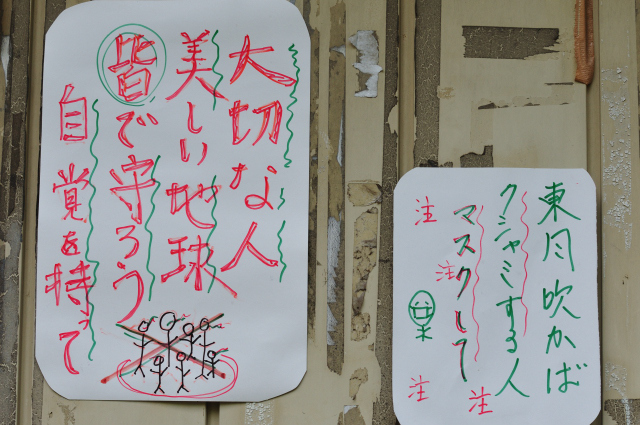 大切な人
美しい地球
皆で守ろう
自覚を持って
東風吹かば
クシャミする人
マスクして
注
注
注
注